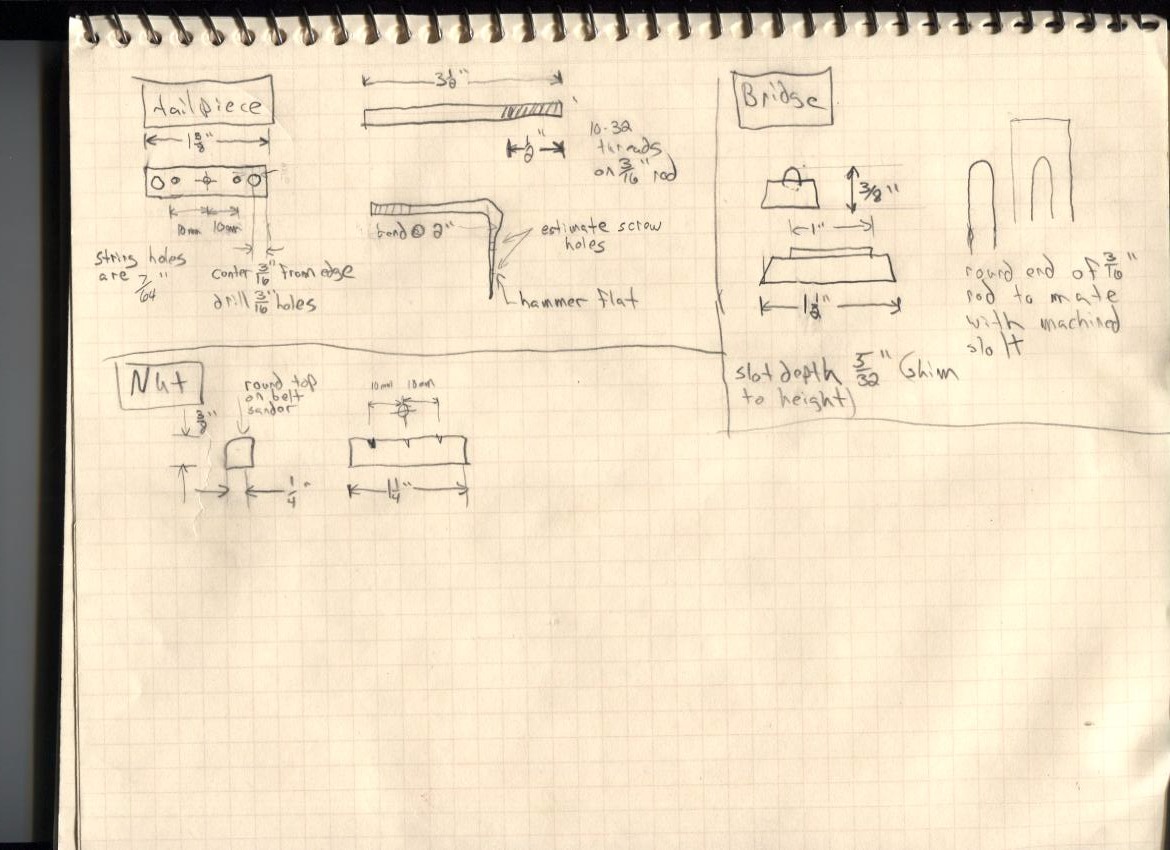 tailpiece
1 5/8"
10mm 10mm
string holes
are 7/64"
center 3/16" from edge
drill 3/16" holes
3 1/2"
1/2"
10-32
threads
on 3/16" rod
bend @ 2"
estimate screw
holes
hammer flat
Bridge
3/8"
1"
1 1/2"
round end of 3/16"
rod to mate
with machined
slolt
slot depth 5/32" (shim
to height)
Nut
round top
on belt
sandor
3/8"
1/4"
10mm 10mm
1 1/4"